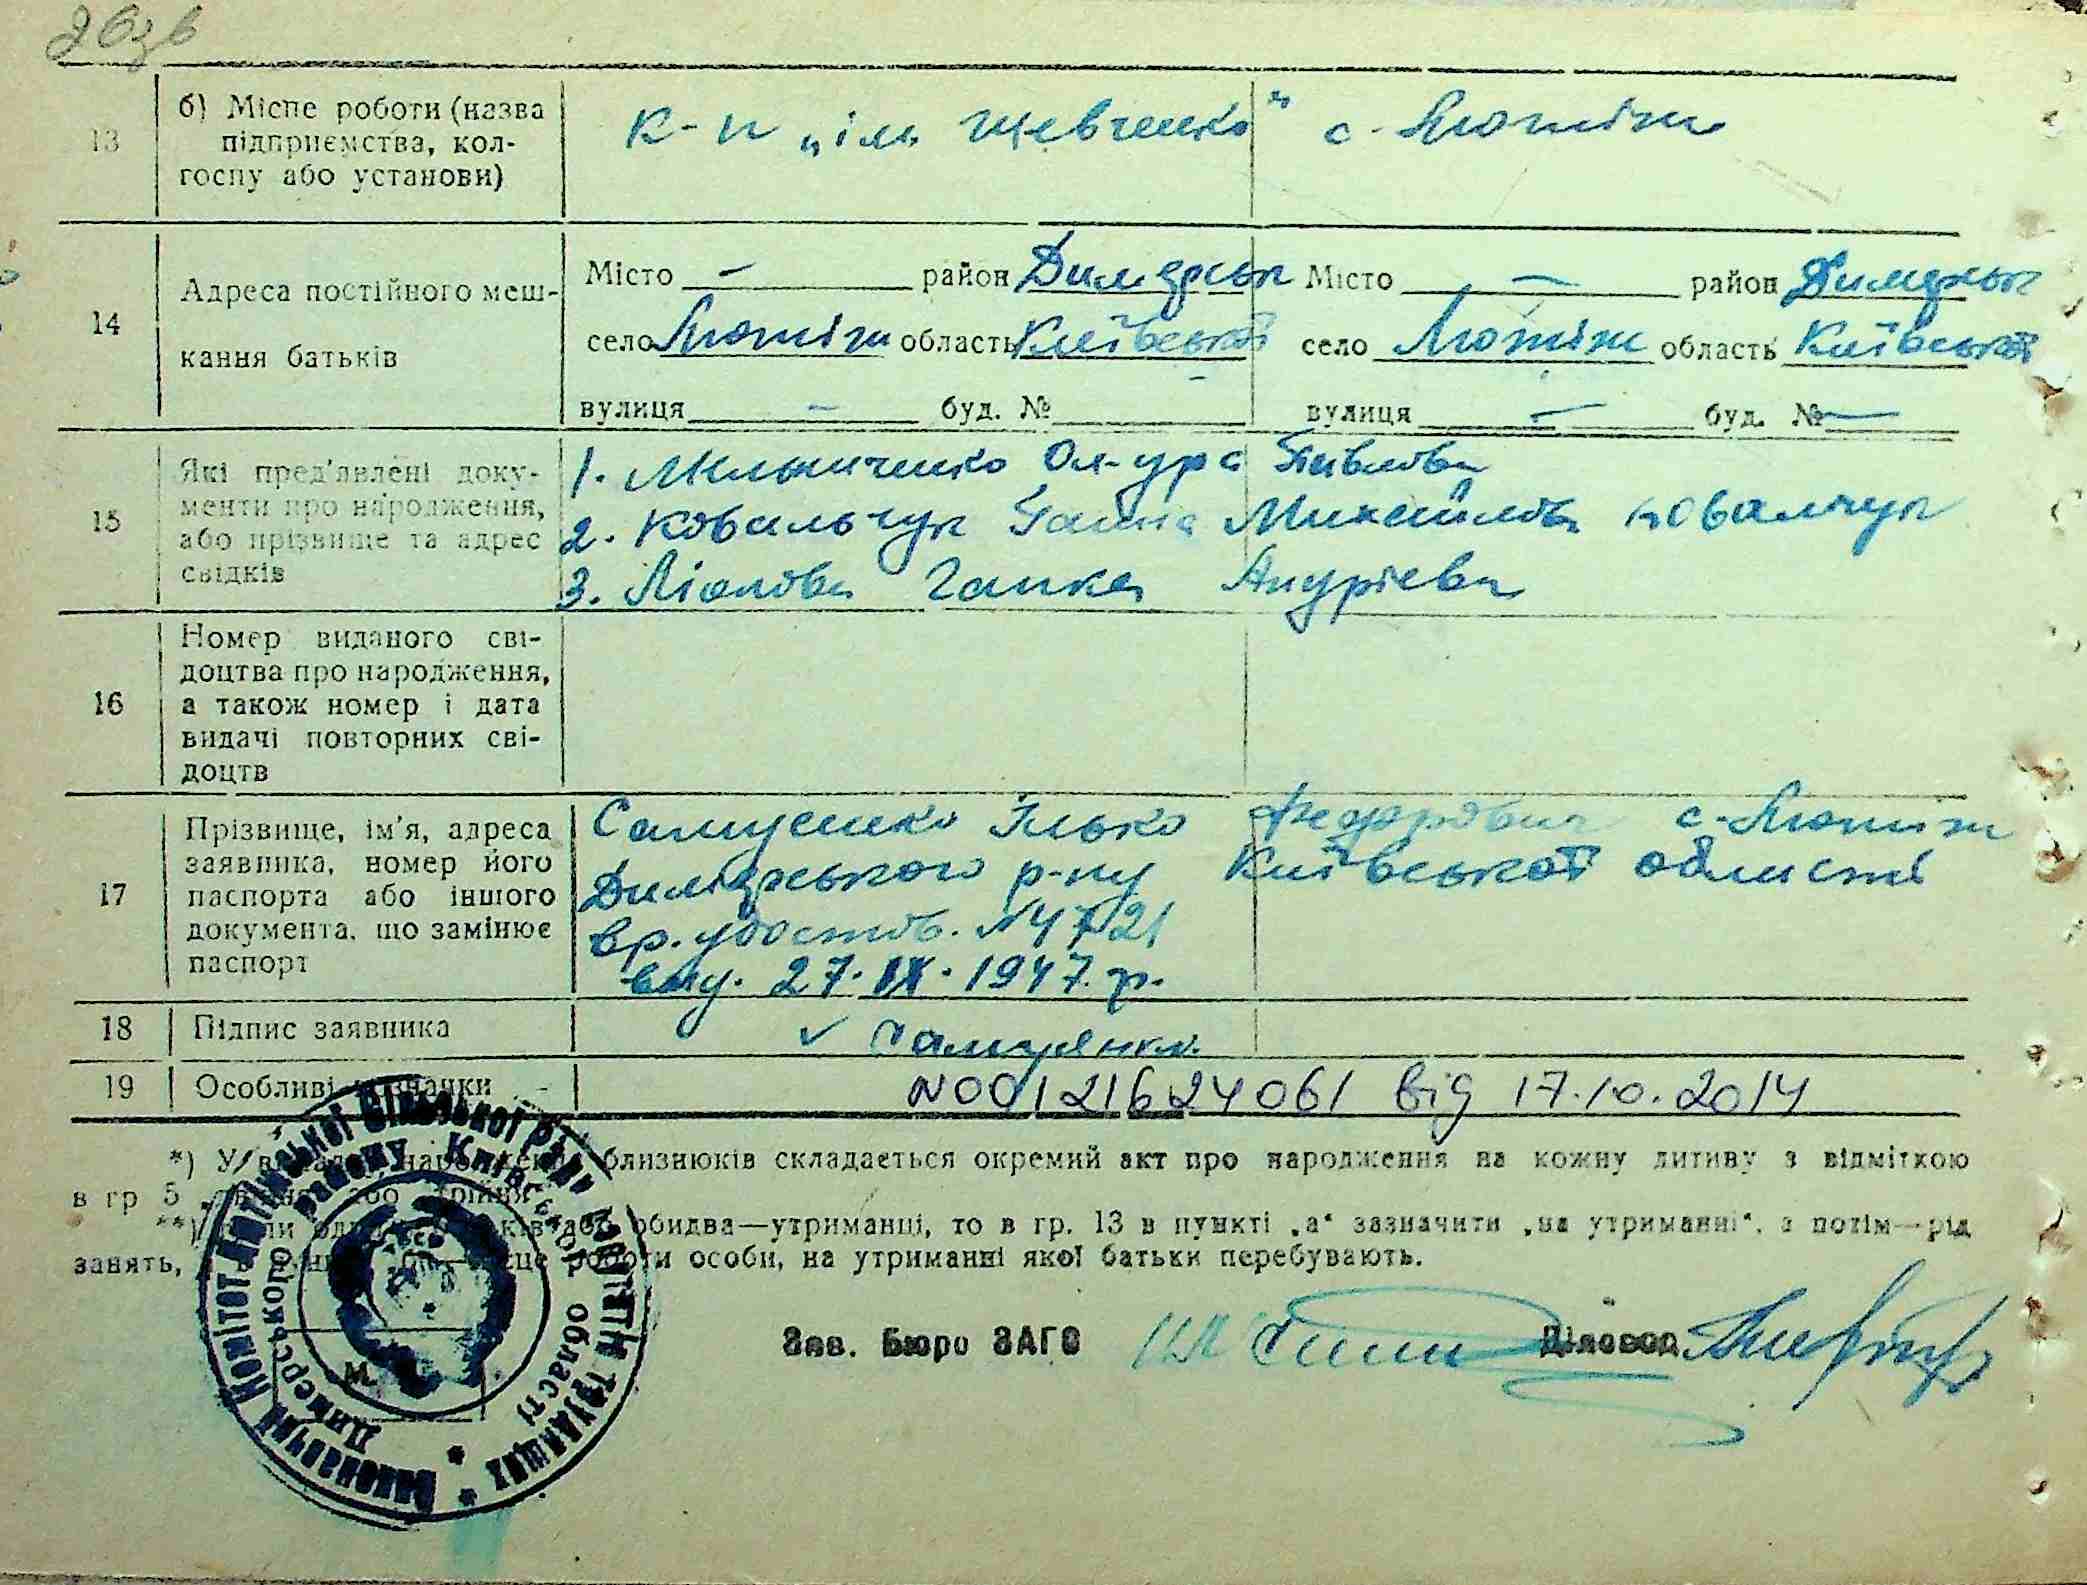 26зв
13 б) Місце роботи (назва підприємства, колгоспу або установи) к-п „ім Шевченко" с. Лютіж
14 Адреса постійного мешкання батьків
Місто — район Димерськ Місто — район Димерськ
село Лютіж область Київської село Лютіж область Київської
вулиця — буд. № вулиця — буд. № —
15 Які пред'явлені документи про народження, або прізвище та адрес свідків
1. Мельниченко Павлова
2. Ковальчук Михайлова Ковальчук
3. Ганка Андрієва
16 Номер виданого свідоцтва про народження, а також номер і дата видачі повторних свідоцтв
17 Прізвище, ім'я, адреса заявника, номер його паспорта або іншого документа, що замінює паспорт
Самусенко Ілько Федорович с. Лютіж
Димерського р-ну Київської області
вр. удостов. № 4721
вид. 27.IX.1947 р.
18 Підпис заявника
19 Особливі значки N00121624061 від 17.10.2014
*) У випадку народження близнюків складається окремий акт про народження на кожну дитину з відміткою
в гр 5 або
**) обидва—утриманці, то в гр. 13 в пункті „а" зазначити „на утриманні", а потім—рід
занять, роботи особи, на утриманні якої батьки перебувають.
Зав. Бюро ЗАГС Діловод
М.
Виконавчий Комітет Лютізької Сільської Ради Депутатів Трудящих
Димерського району Київської області